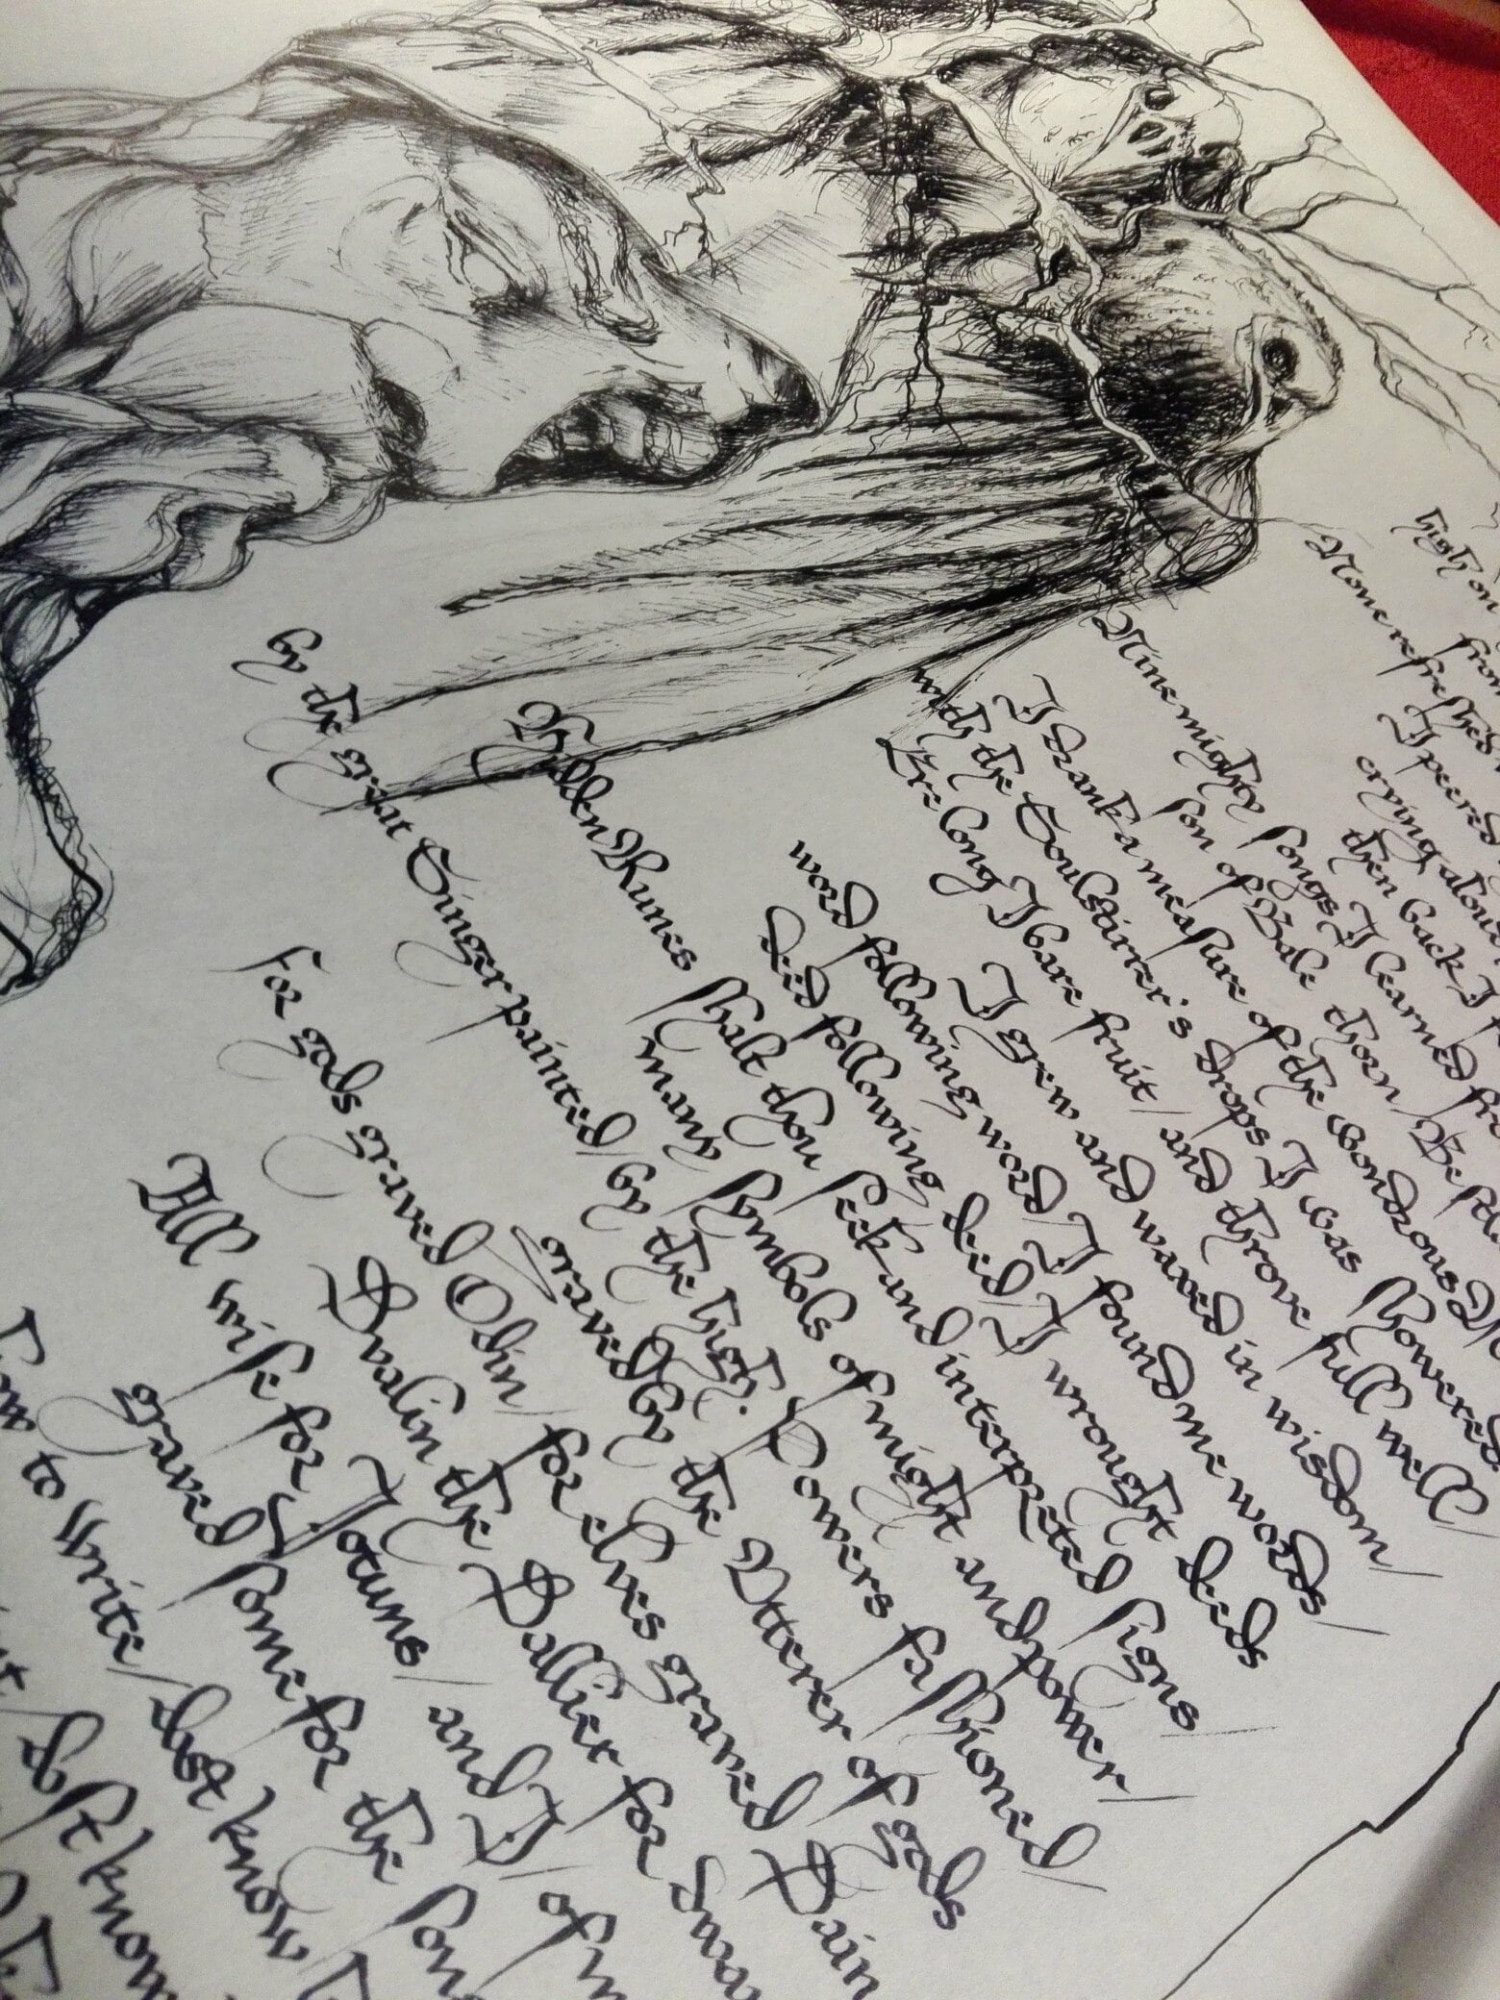 high on
from
None refreshed
I peered
crying aloud
then back I f
Nine mighty songs I learned fro
son of Bale thorn / Bestl
I drank a measure of the wondrous M
with the Soulstirrer's drops I was showered
Ere long I bare fruit / and throve full well /
I grew and waxed in wisdom /
word following word / I found me words /
deed following deed / I wrought deeds
Hydden Runes shalt thou seek and interpreted signs
many symbols of might and power /
by the great Singer painted / by the high Powers fashioned /
graved by the Utterer of gods
For gods graved Odin / for elves graved Dain
Dvalin the Dallier for Dwar
All wise for Jotuns / and I / of m
graved some for the son
how to write / dost know h
dost know